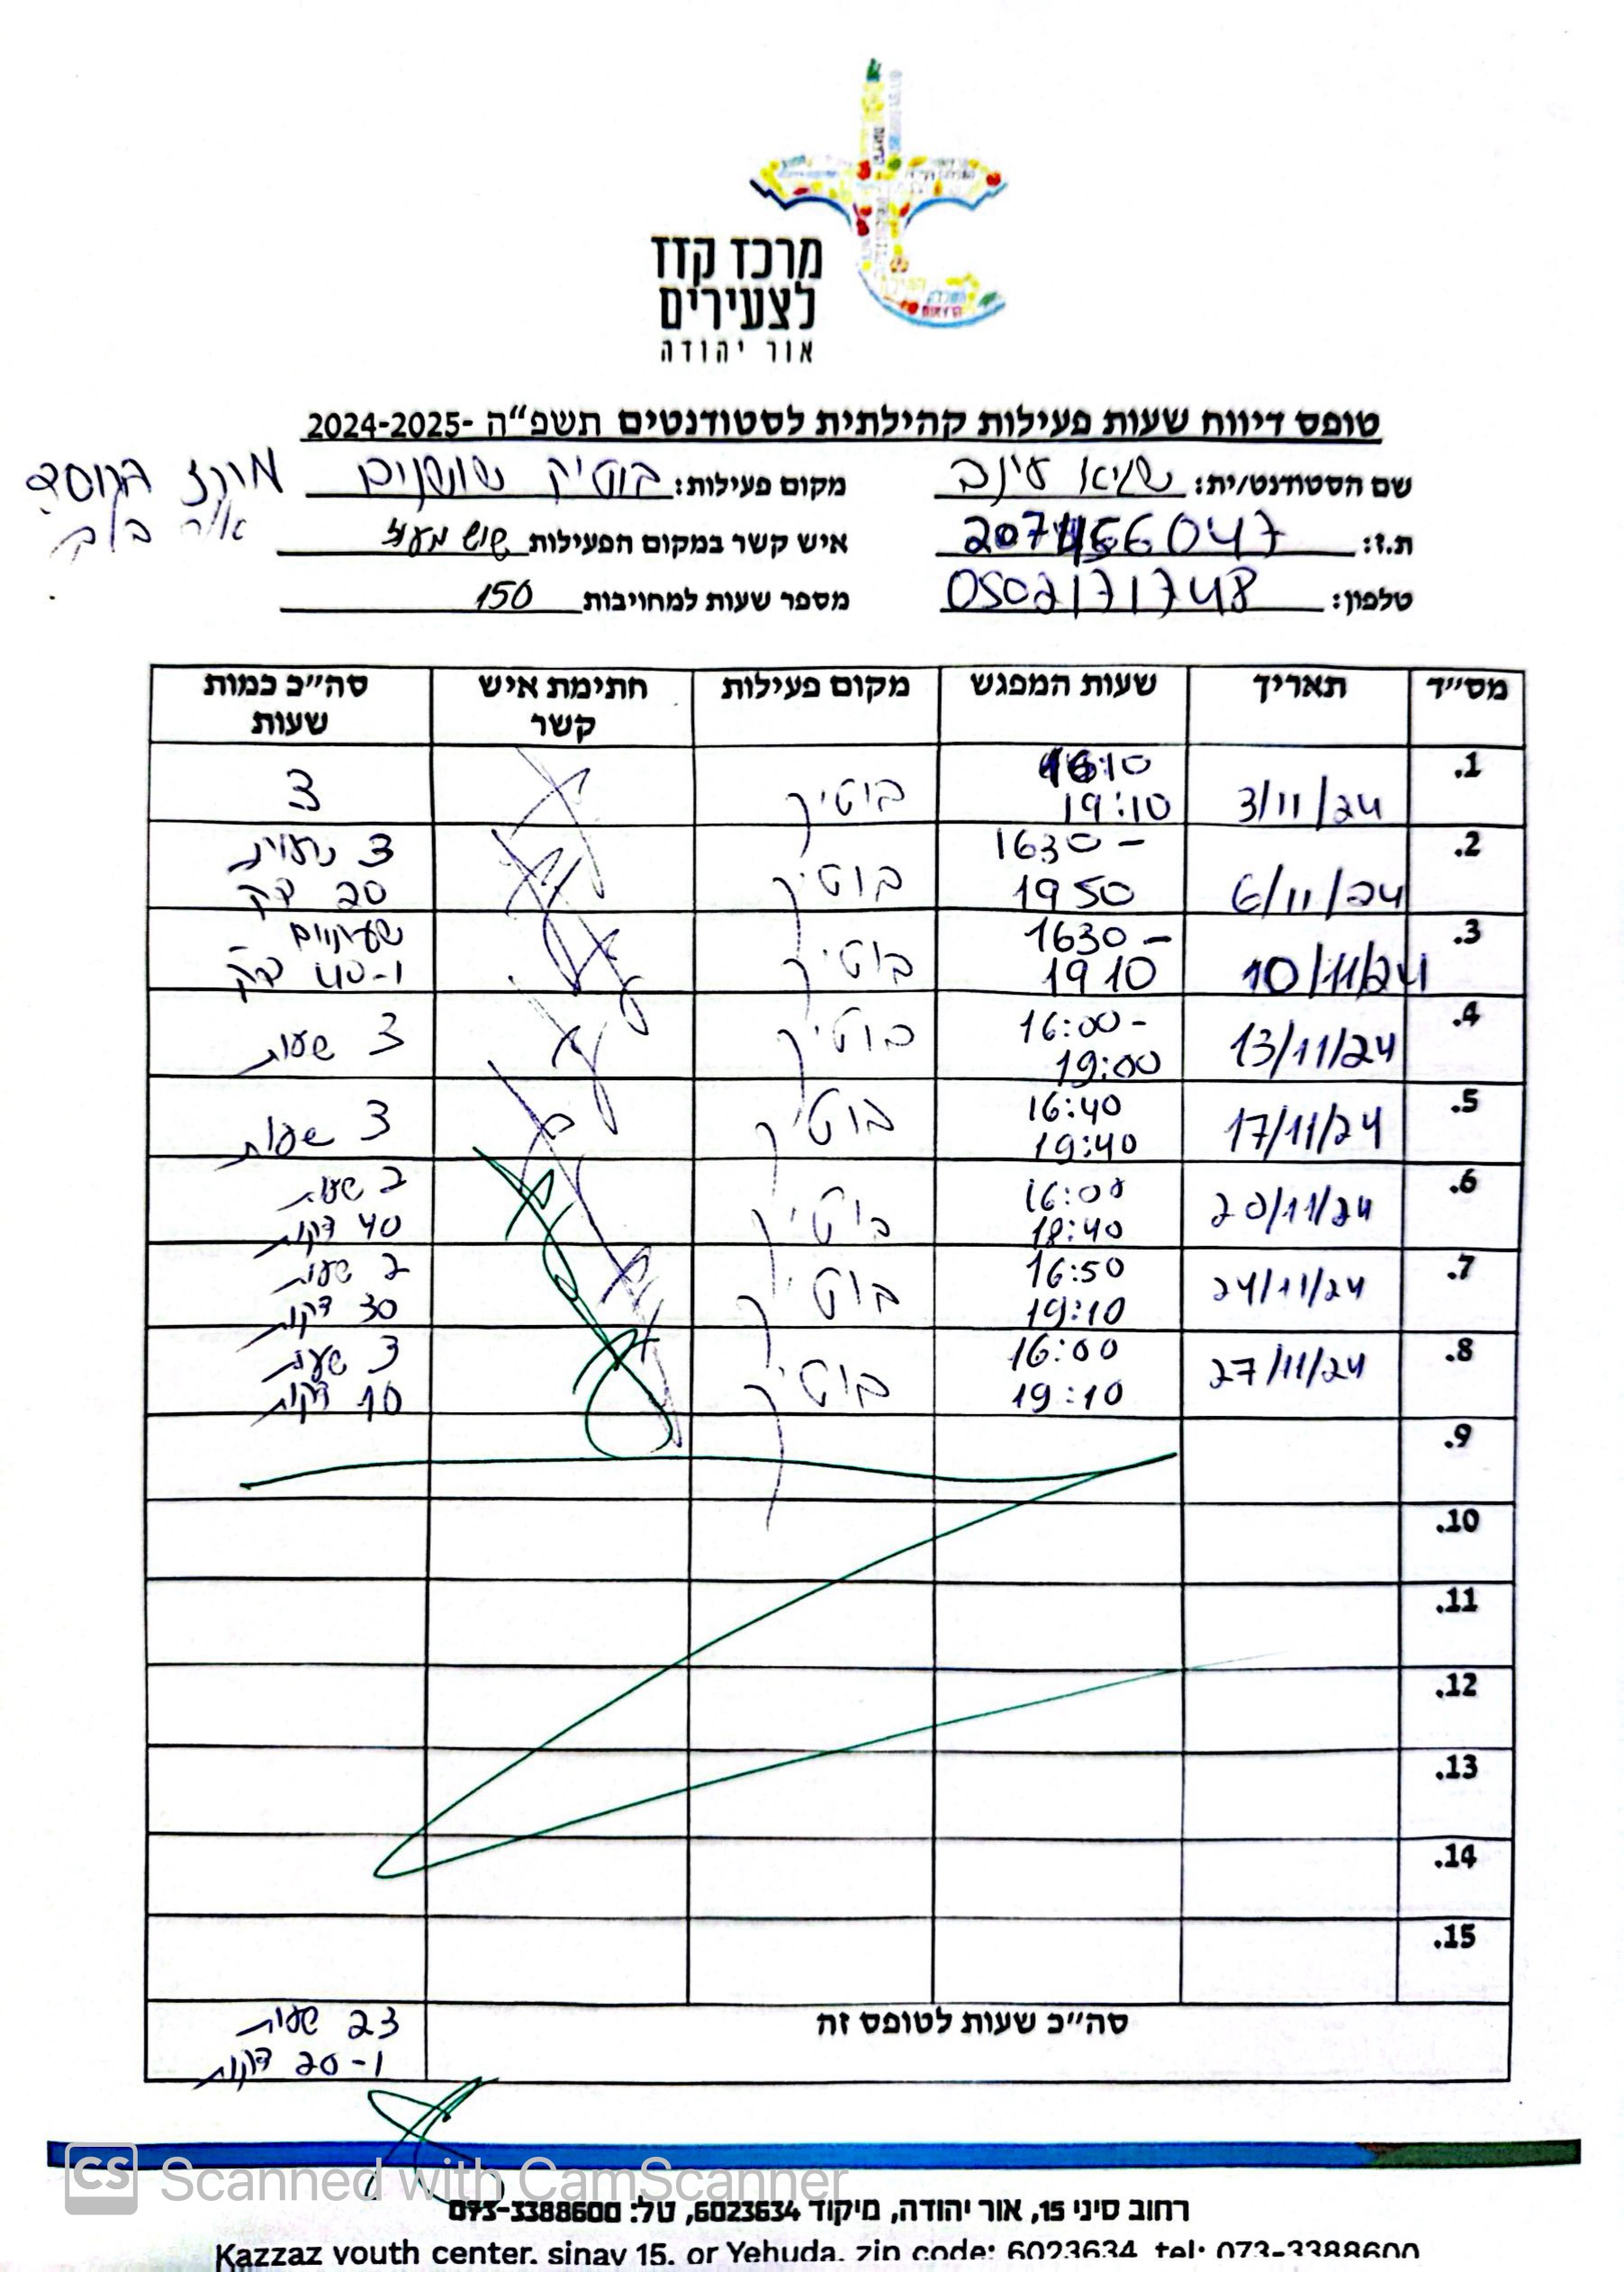 מרכז קזז
לצעירים
אור יהודה
טופס דיווח שעות פעילות קהילתית לסטודנטים תשפ״ה -2024-2025
שם הסטודנט/ית: מקום פעילות: בוטיק שושנים מרכז
ת.ז: 207466047 איש קשר במקום הפעילות שוש
טלפון: 0502171748 מספר שעות למחויבות 150
מס״ד תאריך שעות המפגש מקום פעילות חתימת איש קשר סה״כ כמות שעות
.1 3/11/24 16:10 19:10 בוטיק 3
.2 6/11/24 1630 - 1950 בוטיק 3 שעות 20 דק
.3 10/11/24 1630 - 1910 בוטיק שעתיים ו-40 דק
.4 13/11/24 16:00 - 19:00 בוטיק 3 שעות
.5 17/11/24 16:40 19:40 בוטיק 3 שעות
.6 20/11/24 16:00 18:40 בוטיק 2 שעות 40 דקות
.7 24/11/24 16:50 19:10 בוטיק 2 שעות 30 דקות
.8 27/11/24 16:00 19:10 בוטיק 3 שעות 10 דקות
.9
.10
.11
.12
.13
.14
.15
סה״כ שעות לטופס זה 23 שעות ו-20 דקות
CS Scanned with CamScanner
רחוב סיני 15, אור יהודה, מיקוד 6023634, טל: 073-3388600
Kazzaz youth center. sinay 15. or Yehuda. zip code: 6023634 tel: 073-3388600